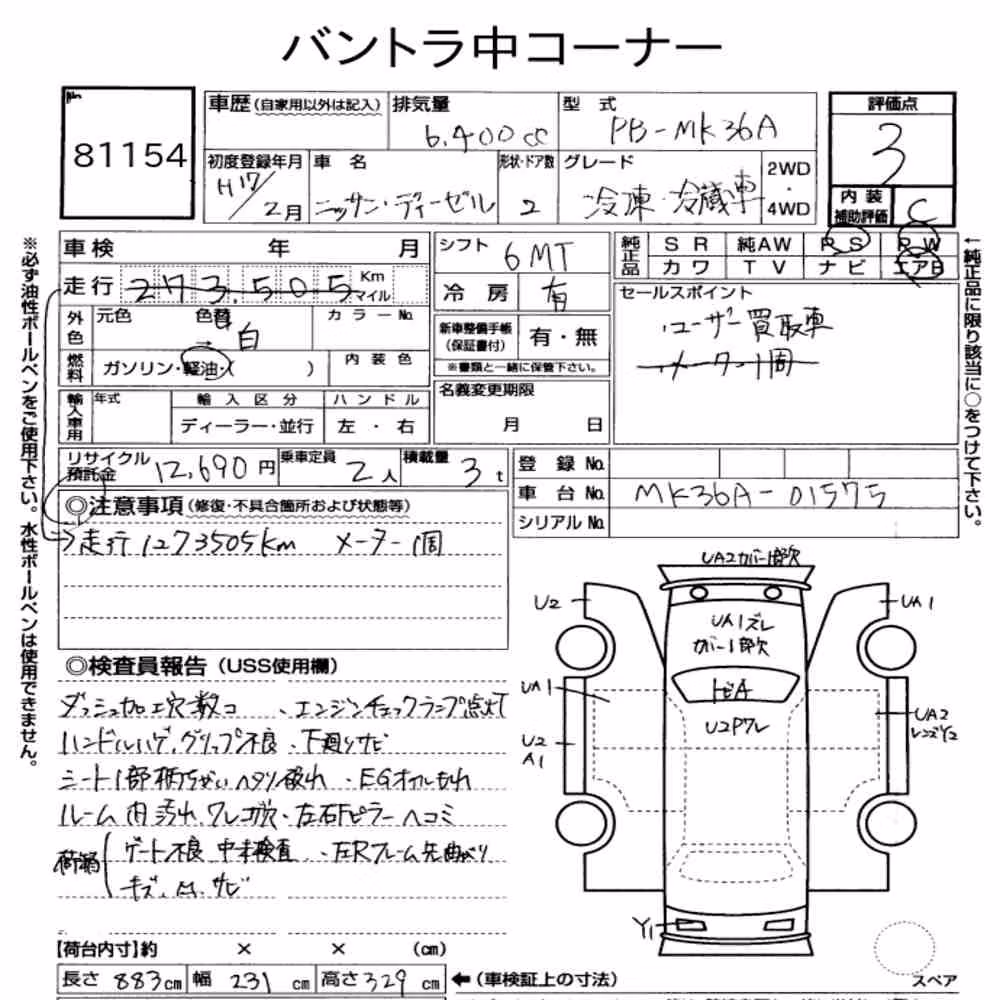 バントラ中コーナー
No.
81154
車歴 (自家用以外は記入)
排気量
6,400cc
型式
PB-MK36A
評価点
3
初度登録年月
H17/2月
車名
ニッサン・ディーゼル
形状・ドア数
2
グレード
冷凍・冷蔵車
2WD
・
4WD
内装
補助評価
C
※必ず油性ボールペンをご使用下さい。水性ボールペンは使用できません。
車検 年 月
シフト
6MT
純正品
SR 純AW PS PW
カワ TV ナビ エアB
←純正品に限り該当に○をつけて下さい。
走行 273,505 Km
マイル
冷房 有
セールスポイント
・ユーザー買取車
メーター1周
外色
元色 色替 カラーNo.
→ 白
新車整備手帳
(保証書付)
有・無
※書類と一緒に保管下さい。
燃料
ガソリン・軽油・( )
内装色
名義変更期限
月 日
輸入車用
年式
輸入区分
ハンドル
ディーラー・並行
左・右
リサイクル
預託金
12,690円
乗車定員
2人
積載量
3t
登録No.
車台No.
MK36A-01575
シリアルNo.
◎注意事項 (修復・不具合箇所および状態等)
→走行1273505km メーター1周
◎検査員報告 (USS使用欄)
ダッシュ加工穴数コ ・エンジンチェックランプ点灯
ハンドルハゲ、グリップ不良 ・下廻りサビ
シート1部柄ちがいヘタリ破れ ・EGオイルもれ
ルーム内汚れ、ワレ・左右Fピラーヘコミ
荷箱
ゲート不良 中未検査 ・左Rフレーム先曲がり
キズ、凹、サビ
UA2カバー1部欠
U2
UA1
UA1ズレ
カバー1部欠
トビA
UA1
U2Pワレ
UA2
レンズY2
U2
A1
Y1
スペア
【荷台内寸】約 × × (cm)
長さ 883cm 幅 231cm 高さ 329cm
←(車検証上の寸法)